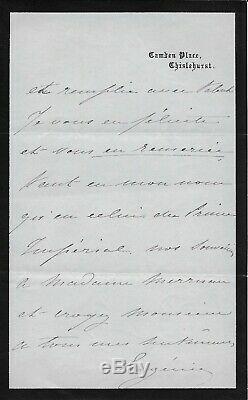 Camden Place,
Chislehurst.
est remplie avec talent
Je vous en félicite
et vous en remercie
tant en mon nom
qu'en celui du Prince
Impérial. nos souvenirs
a Madame Merriman
et croyez Monsieur
a tous mes sentiments
Eugénie
ebay